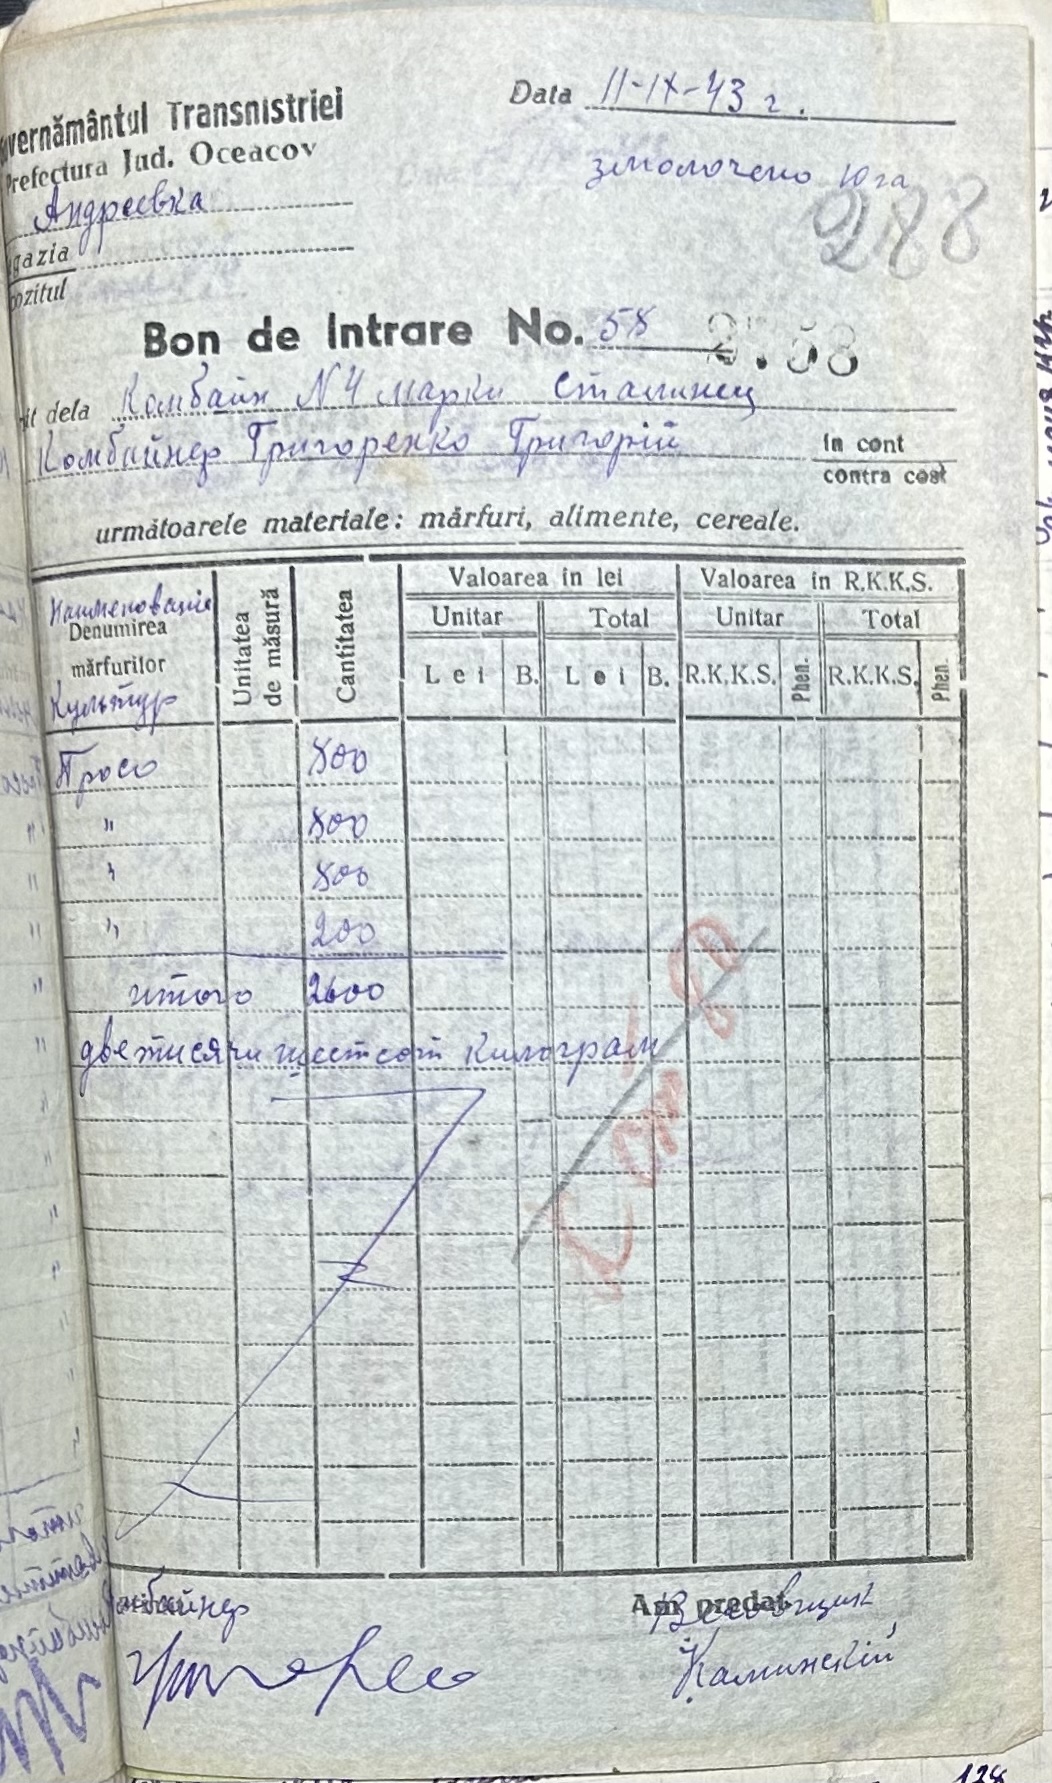 Guvernământul Transnistriei
Prefectura Jud. Oceacov
Андреевка
gazia
pozitul
Data 11-IX-43 г.
змолочено Юга
288
Bon de Intrare No. 58
2.58
it dela Комбайн N4 марки Сталинец
Комбайнер Григоренко Григорій In cont
contra cost
următoarele materiale: mărfuri, alimente, cereale.
Наименование
Denumirea mărfurilor
Культур
Unitatea de măsură
Cantitatea
Valoarea in lei
Valoarea in R.K.K.S.
Unitar Total Unitar Total
Lei B. Lei B. R.K.K.S. Phen. R.K.K.S. Phen.
Просо 800
" 800
" 800
" 200
итого 2600
две тисячи шестсот килограм
Комбайнер
Am predat
Весовщик
Каминскій
128